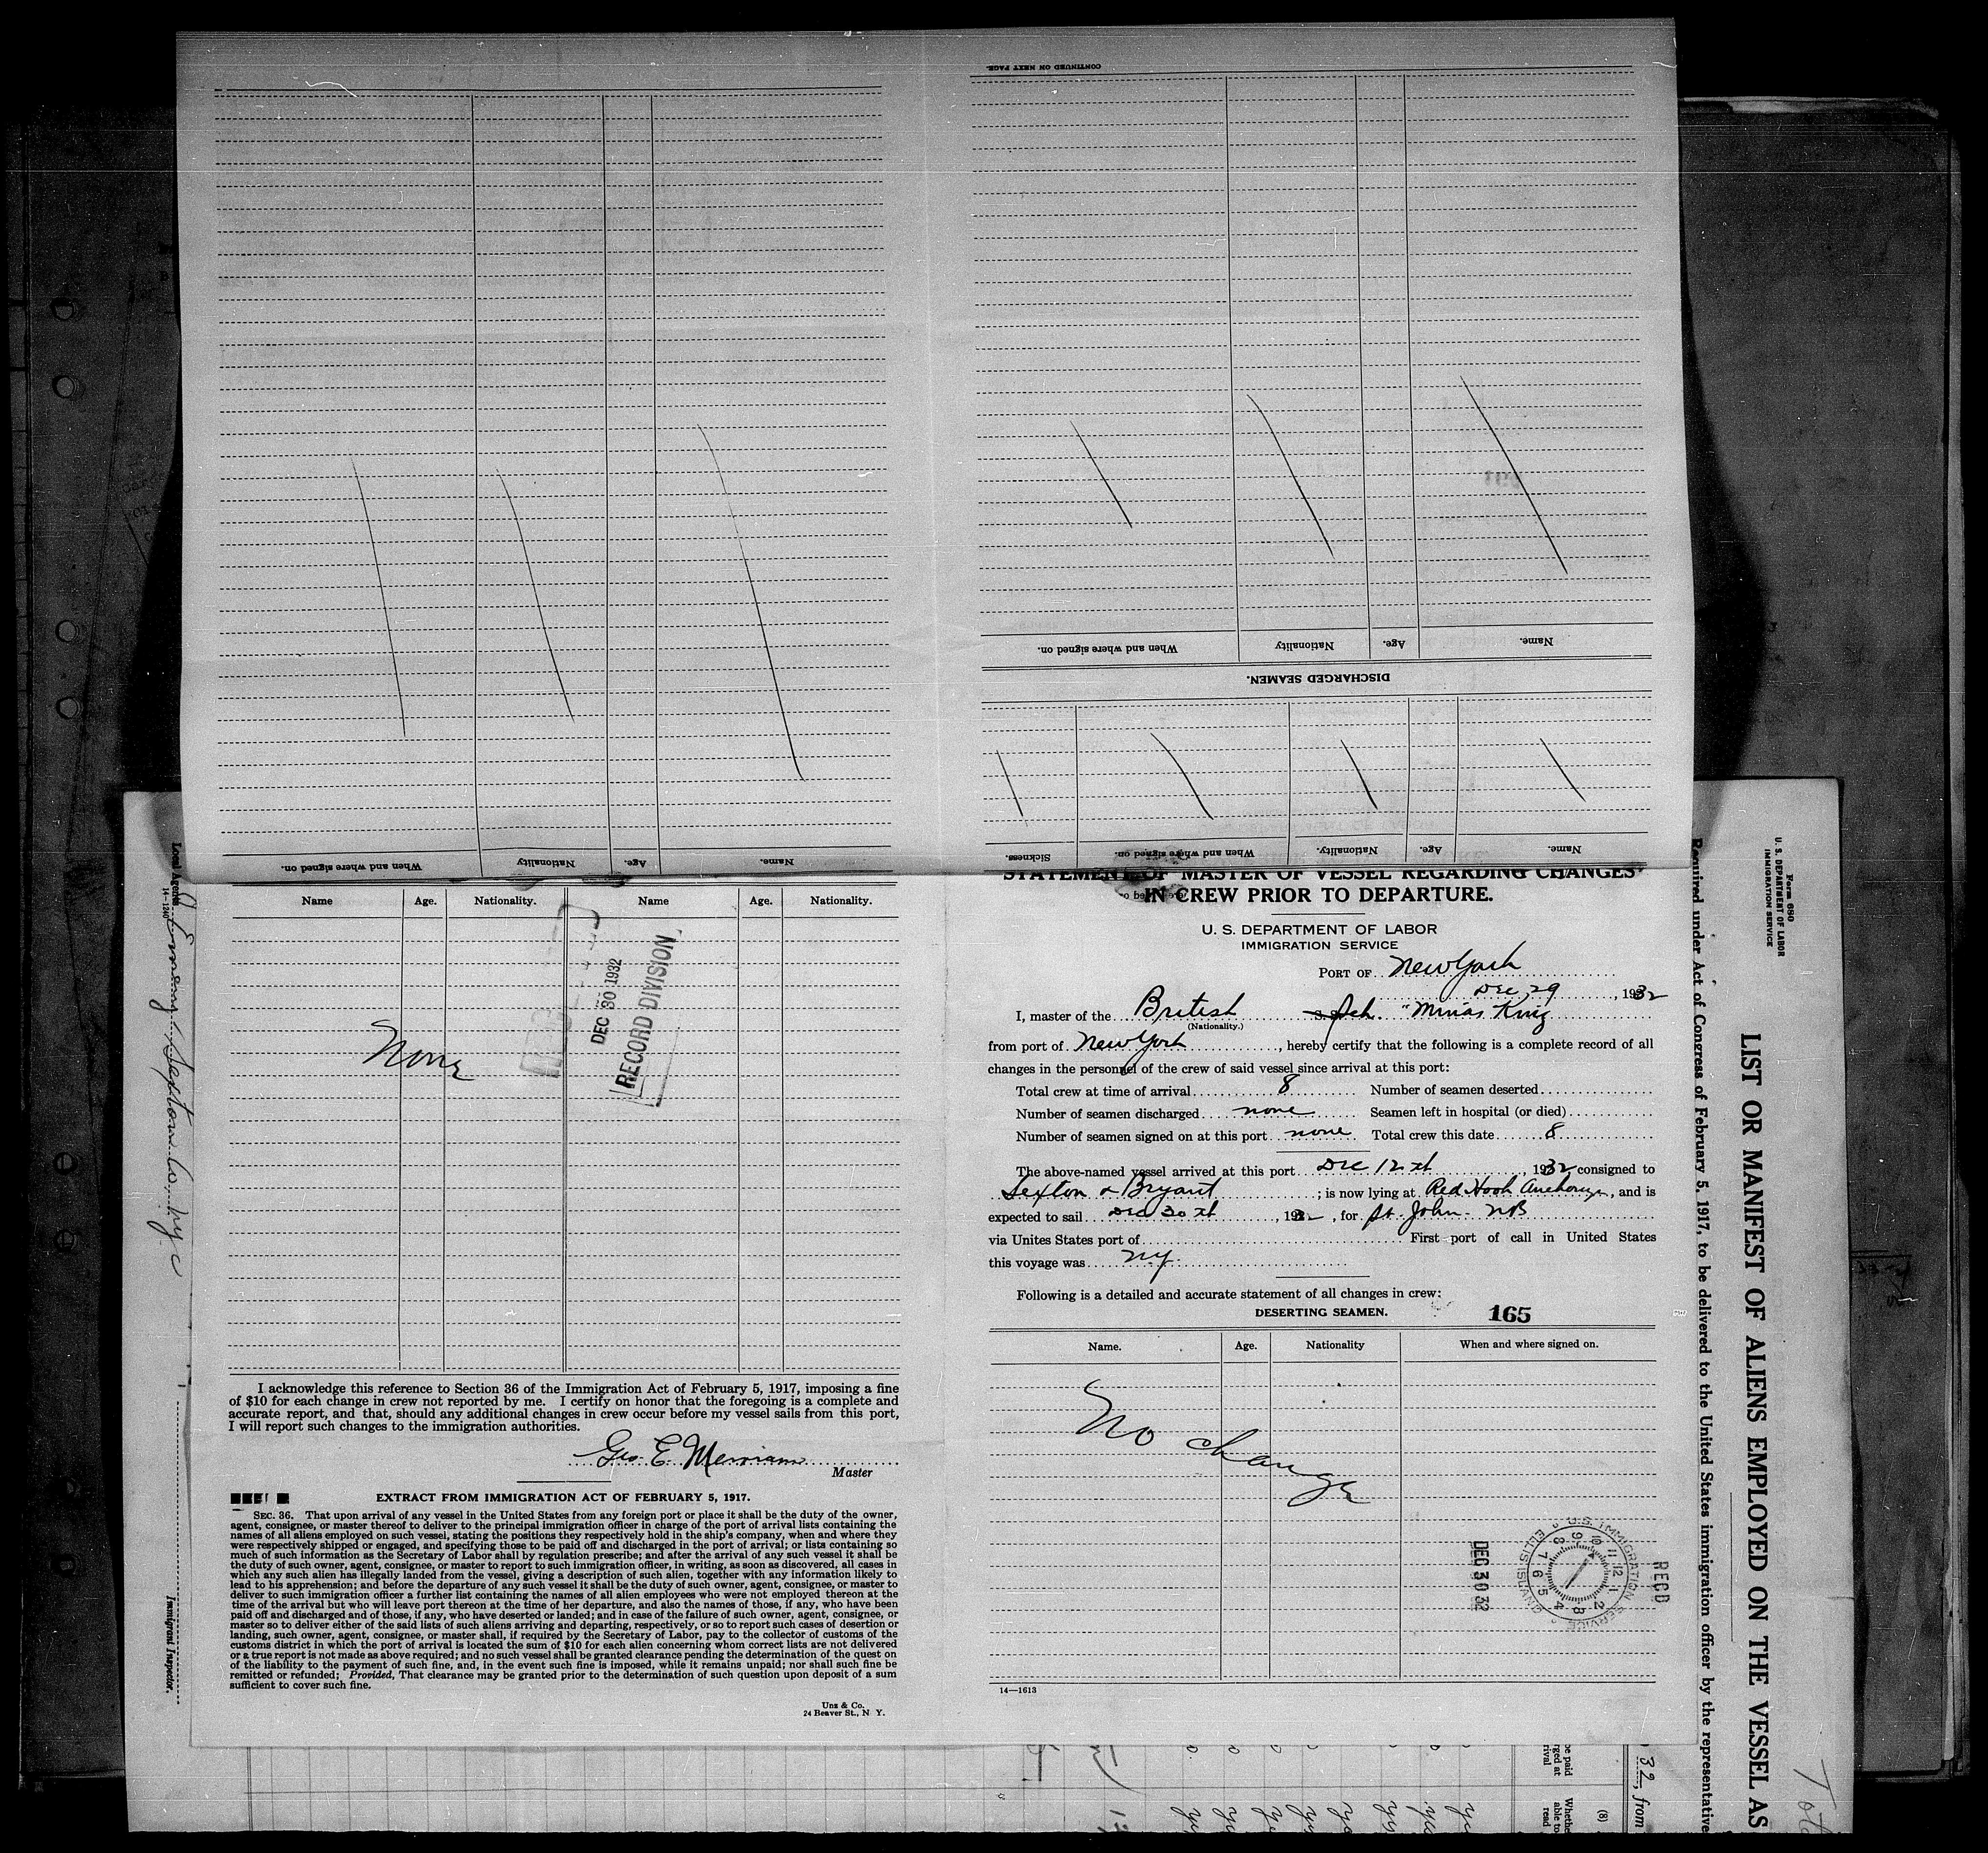 CONTINUED ON NEXT PAGE.
When and where signed on. Nationality Age. Name.
When and where signed on. Nationality Age. Name.
DISCHARGED SEAMEN.
Sickness. When and where signed on. Nationality. Age. Name.
Name Age. Nationality. Name Age. Nationality.
None
DEC 30 1932
RECORD DIVISION
I acknowledge this reference to Section 36 of the Immigration Act of February 5, 1917, imposing a fine
of $10 for each change in crew not reported by me. I certify on honor that the foregoing is a complete and
accurate report, and that, should any additional changes in crew occur before my vessel sails from this port,
I will report such changes to the immigration authorities.
Geo. E. Merriam
Master
EXTRACT FROM IMMIGRATION ACT OF FEBRUARY 5, 1917.
SEC. 36. That upon arrival of any vessel in the United States from any foreign port or place it shall be the duty of the owner,
agent, consignee, or master thereof to deliver to the principal immigration officer in charge of the port of arrival lists containing the
names of all aliens employed on such vessel, stating the positions they respectively hold in the ship's company, when and where they
were respectively shipped or engaged, and specifying those to be paid off and discharged in the port of arrival; or lists containing so
much of such information as the Secretary of Labor shall by regulation prescribe; and after the arrival of any such vessel it shall be
the duty of such owner, agent, consignee, or master to report to such immigration officer, in writing, as soon as discovered, all cases in
which any such alien has illegally landed from the vessel, giving a description of such alien, together with any information likely to
lead to his apprehension; and before the departure of any such vessel it shall be the duty of such owner, agent, consignee, or master to
deliver to such immigration officer a further list containing the names of all alien employees who were not employed thereon at the
time of the arrival but who will leave port thereon at the time of her departure, and also the names of those, if any, who have been
paid off and discharged and of those, if any, who have deserted or landed; and in case of the failure of such owner, agent, consignee, or
master so to deliver either of the said lists of such aliens arriving and departing, respectively, or so to report such cases of desertion or
landing, such owner, agent, consignee, or master shall, if required by the Secretary of Labor, pay to the collector of customs of the
customs district in which the port of arrival is located the sum of $10 for each alien concerning whom correct lists are not delivered
or a true report is not made as above required; and no such vessel shall be granted clearance pending the determination of the quest on
of the liability to the payment of such fine, and, in the event such fine is imposed, while it remains unpaid; nor shall such fine be
remitted or refunded; Provided, That clearance may be granted prior to the determination of such question upon deposit of a sum
sufficient to cover such fine.
Unz & Co.
24 Beaver St., N Y.
STATEMENT OF MASTER OF VESSEL REGARDING CHANGES
IN CREW PRIOR TO DEPARTURE.
U. S. DEPARTMENT OF LABOR
IMMIGRATION SERVICE
PORT OF New York
Dec 29, 1932
I, master of the British S. S. Sch. "Minas King
(Nationality.)
from port of New York, hereby certify that the following is a complete record of all
changes in the personnel of the crew of said vessel since arrival at this port:
Total crew at time of arrival 8 Number of seamen deserted
Number of seamen discharged none Seamen left in hospital (or died)
Number of seamen signed on at this port none Total crew this date 8
The above-named vessel arrived at this port Dec 12th, 1932 consigned to
Sexton & Bryant; is now lying at Red Hook Anchorage, and is
expected to sail Dec 30th, 1932, for St. John. NB
via Unites States port of First port of call in United States
this voyage was NY.
Following is a detailed and accurate statement of all changes in crew:
DESERTING SEAMEN. 165
Name. Age. Nationality When and where signed on.
No change
DEC 30 32
U.S. IMMIGRATION SERVICE
ELLIS ISLAND
REC'D
14—1613
Form 680
U. S. DEPARTMENT OF LABOR
IMMIGRATION SERVICE
LIST OR MANIFEST OF ALIENS EMPLOYED ON THE VESSEL AS
Required under Act of Congress of February 5, 1917, to be delivered to the United States immigration officer by the representative
32, from
(8)
Local Agents
14-1240
Immigrant Inspector.